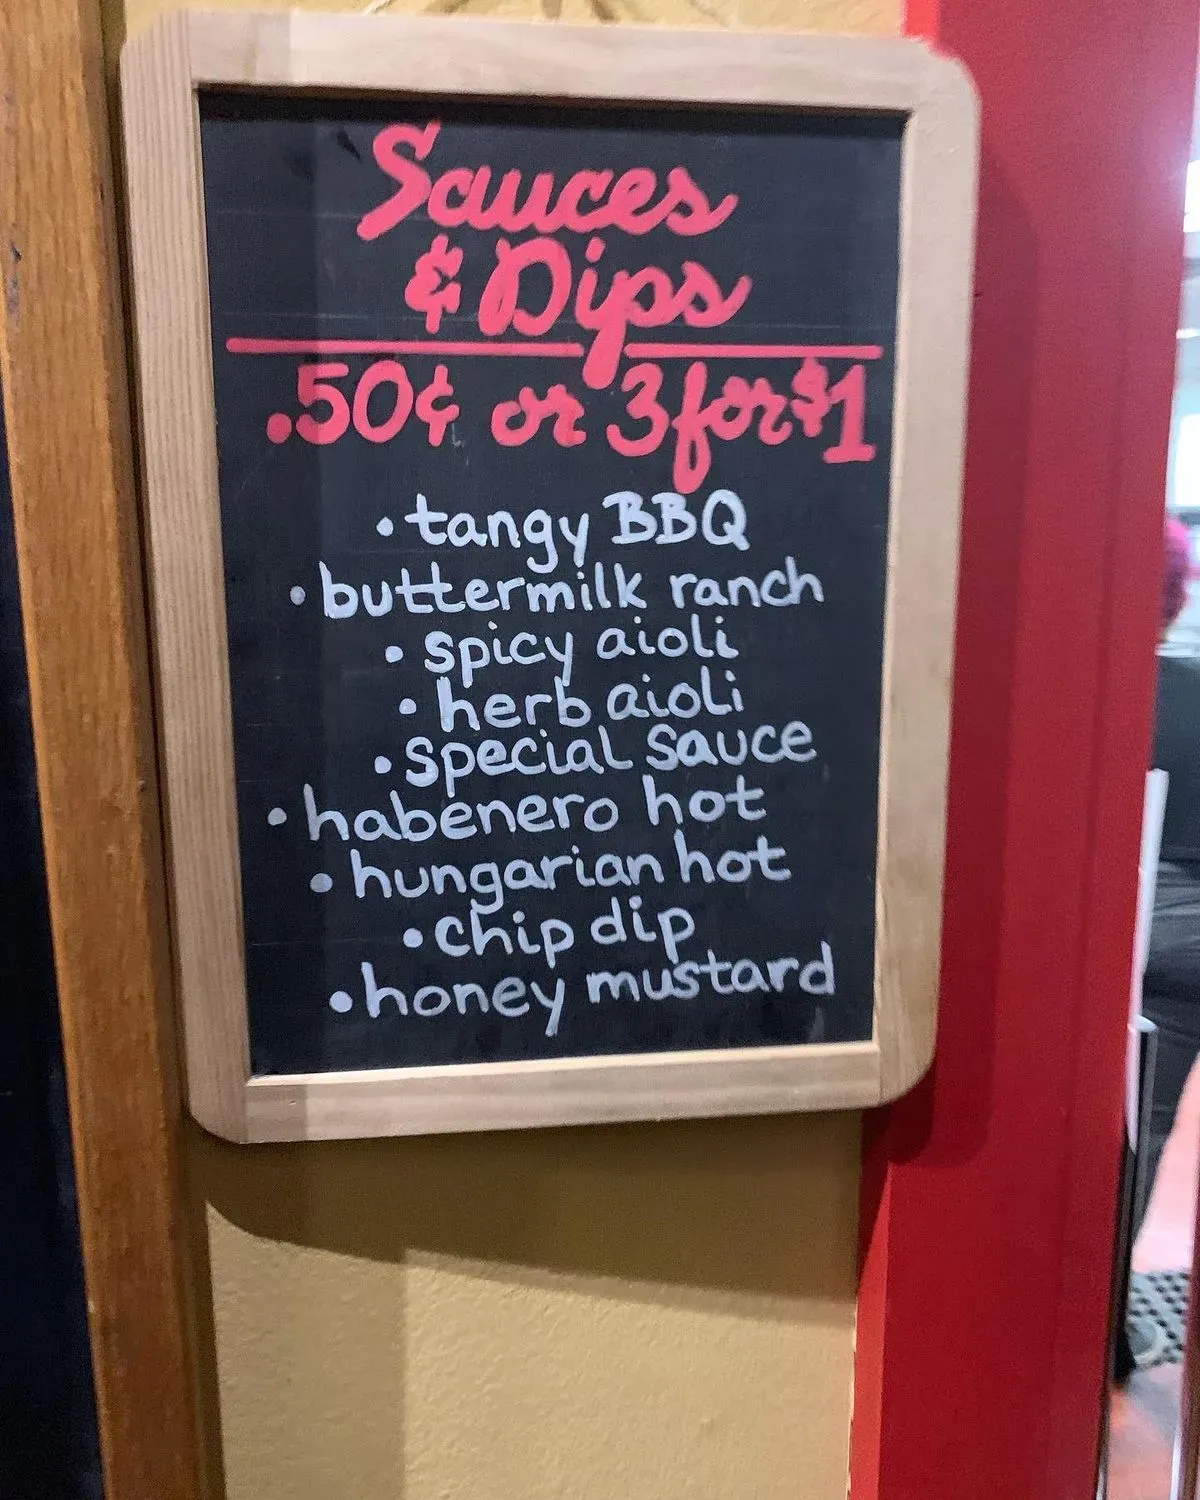 Sauces
& Dips
.50¢ or 3 for $1
• tangy BBQ
• buttermilk ranch
• spicy aioli
• herb aioli
• special sauce
• habenero hot
• hungarian hot
• chip dip
• honey mustard